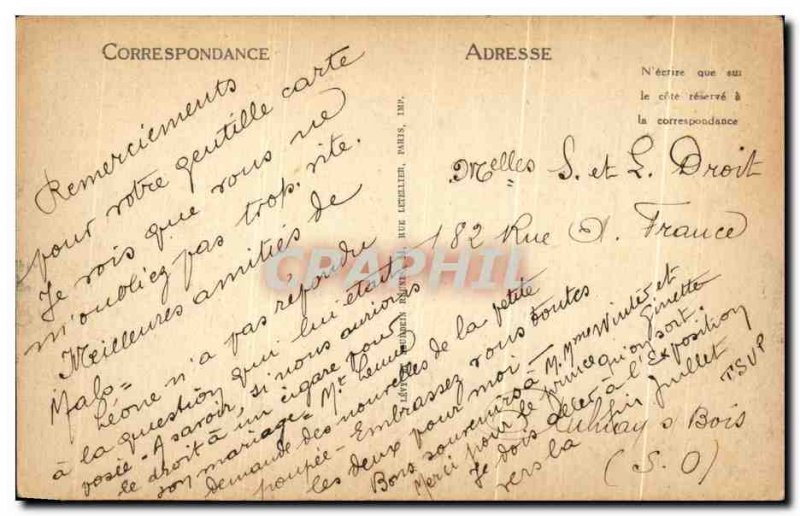 CORRESPONDANCE
Remerciements
pour votre gentille carte
Je vois que vous ne
m'oubliez pas trop vite.
Meilleures amitiés de
Malo =
Léone n'a pas répondu
à la question qui lui était
posée - A savoir, si nous aurions
le droit à un cigare pour
son mariage =
demande des nouvelles de la petite
poupée - Embrassez vous toutes
les deux pour moi -
Bons souvenirs à M. Mme et
Ginette
Merci pour le prince qu'on sort.
Je dois aller à l'Exposition
vers la fin Juillet
TSVP
LÉVY ET NEURDEIN RÉUNIS, RUE LETELLIER, PARIS, IMP.
ADRESSE
N'écrire que sur
le côté réservé à
la correspondance
Melles S. et L. Droit
182 Rue A. France
Aulnay s Bois
(S. O)
CRAPHIL